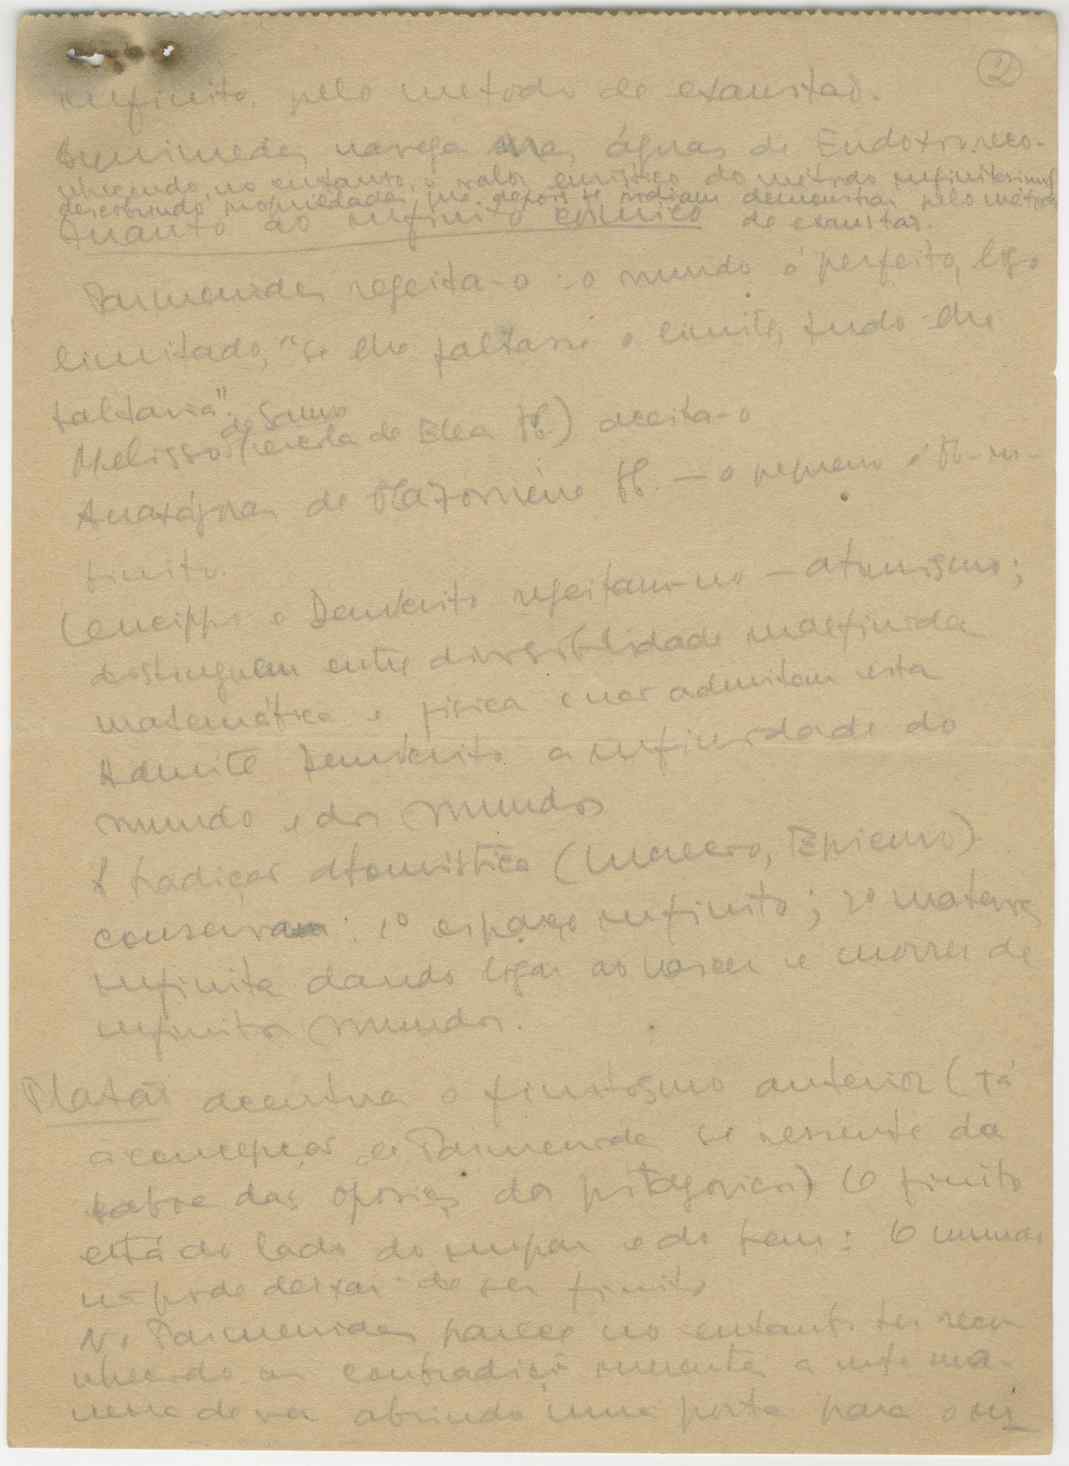 2
infinito, pelo metodo de exaustão.
Arquimedes navega nas águas de Eudoxo, reco-
nhecendo, no entanto, o valor eurístico do método infinitesimal
descobrindo propriedades que depois se podiam demonstrar pelo método
de exaustão.
Quanto ao infinito cósmico
Parmenides rejeita-o: o mundo é perfeito, logo
limitado, "se lhe faltasse o limite, tudo lhe
faltaria".
Melisso de Samo (escola de Elea) aceita-o
Anaxágoras de — o pequeno é in-
finito.
Leucippo e Demócrito rejeitam-no — atomismo;
distinguem entre divisibilidade indefinida
matemática e física e não admitem esta
Admite Demócrito a infinidade do
mundo e dos mundos
A tradição atomistica (Lucrecio, Epicuro)
conserva: 1º espaço infinito; 2º materia
infinita dando lugar ao nascer e morrer de
infinitos mundos.
Platão acentua o finitismo anterior (já
a concepção de Parmenides se ressente da
taboa das oposições dos pitagoricos) O finito
está do lado do impar e do bem: O mundo
não pode deixar de ser finito
No Parmenides parece no entanto ter reco-
nhecido as contradições
de ver abrindo uma porta para o